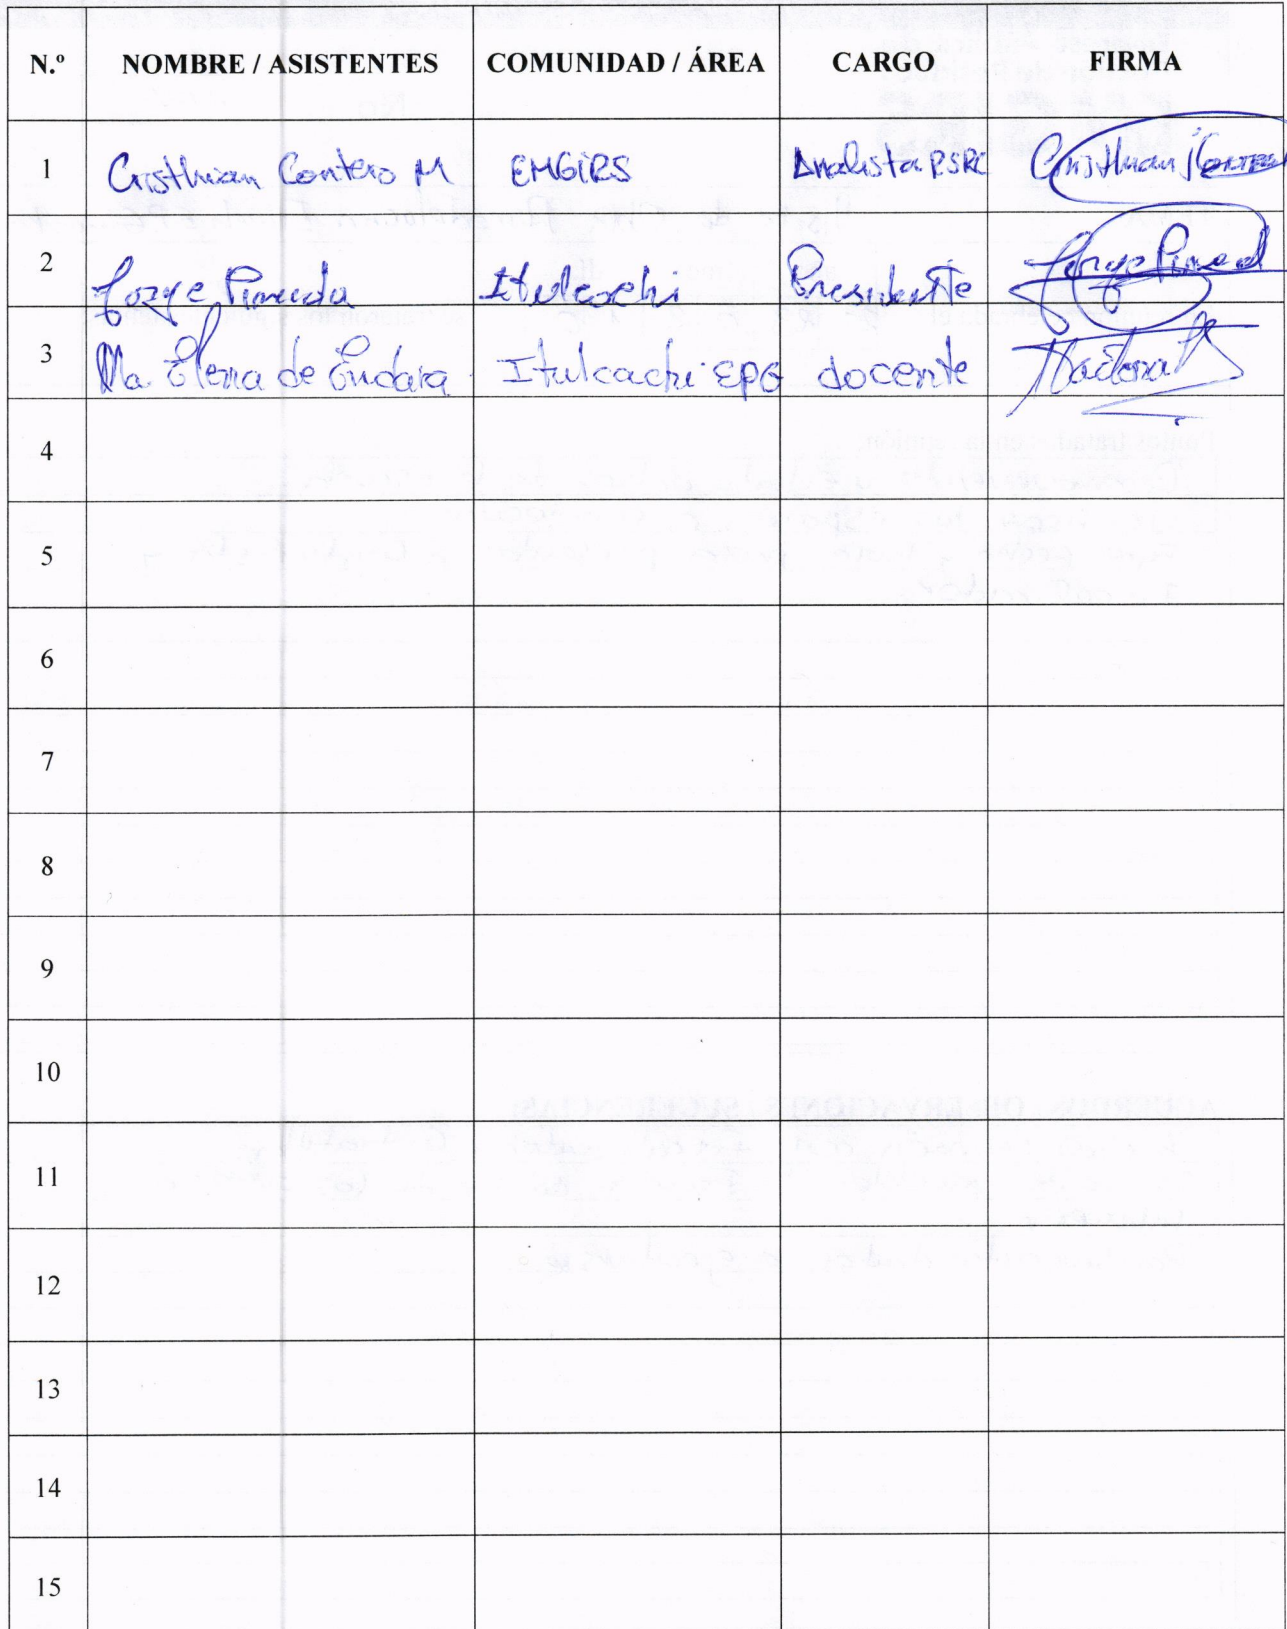 N.º NOMBRE / ASISTENTES COMUNIDAD / ÁREA CARGO FIRMA
1 Cristhian Contero M EMGIRS Analista RSRC Cristhian Contero
2 Jorge Pineda Itulcachi Presidente Jorge Pined
3 Ma Elena de Endara Itulcachi EPG docente
4
5
6
7
8
9
10
11
12
13
14
15